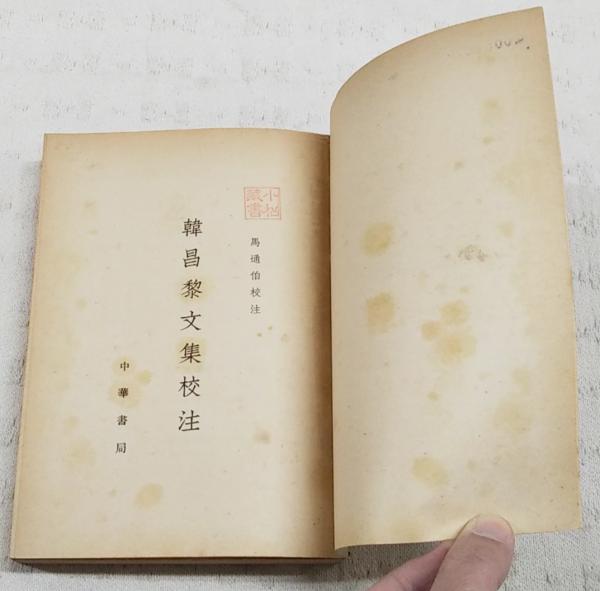 小松
藏書
馬通伯校注
韓昌黎文集校注
中華書局